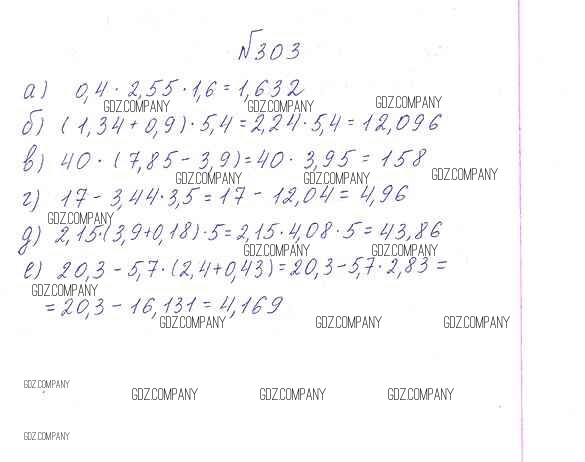 №303
а) 0,4 · 2,55 · 1,6 = 1,632
GDZ.COMPANY GDZ.COMPANY GDZ.COMPANY
б) (1,34 + 0,9) · 5,4 = 2,24 · 5,4 = 12,096
в) 40 · (7,85 - 3,9) = 40 · 3,95 = 158
GDZ.COMPANY GDZ.COMPANY GDZ.COMPANY
г) 17 - 3,44 · 3,5 = 17 - 12,04 = 4,96
GDZ.COMPANY
д) 2,15 · (3,9 + 0,18) · 5 = 2,15 · 4,08 · 5 = 43,86
GDZ.COMPANY GDZ.COMPANY
е) 20,3 - 5,7 · (2,4 + 0,43) = 20,3 - 5,7 · 2,83 =
GDZ.COMPANY
= 20,3 - 16,131 = 4,169
GDZ.COMPANY GDZ.COMPANY GDZ.COMPANY
GDZ.COMPANY
GDZ.COMPANY GDZ.COMPANY GDZ.COMPANY
GDZ.COMPANY